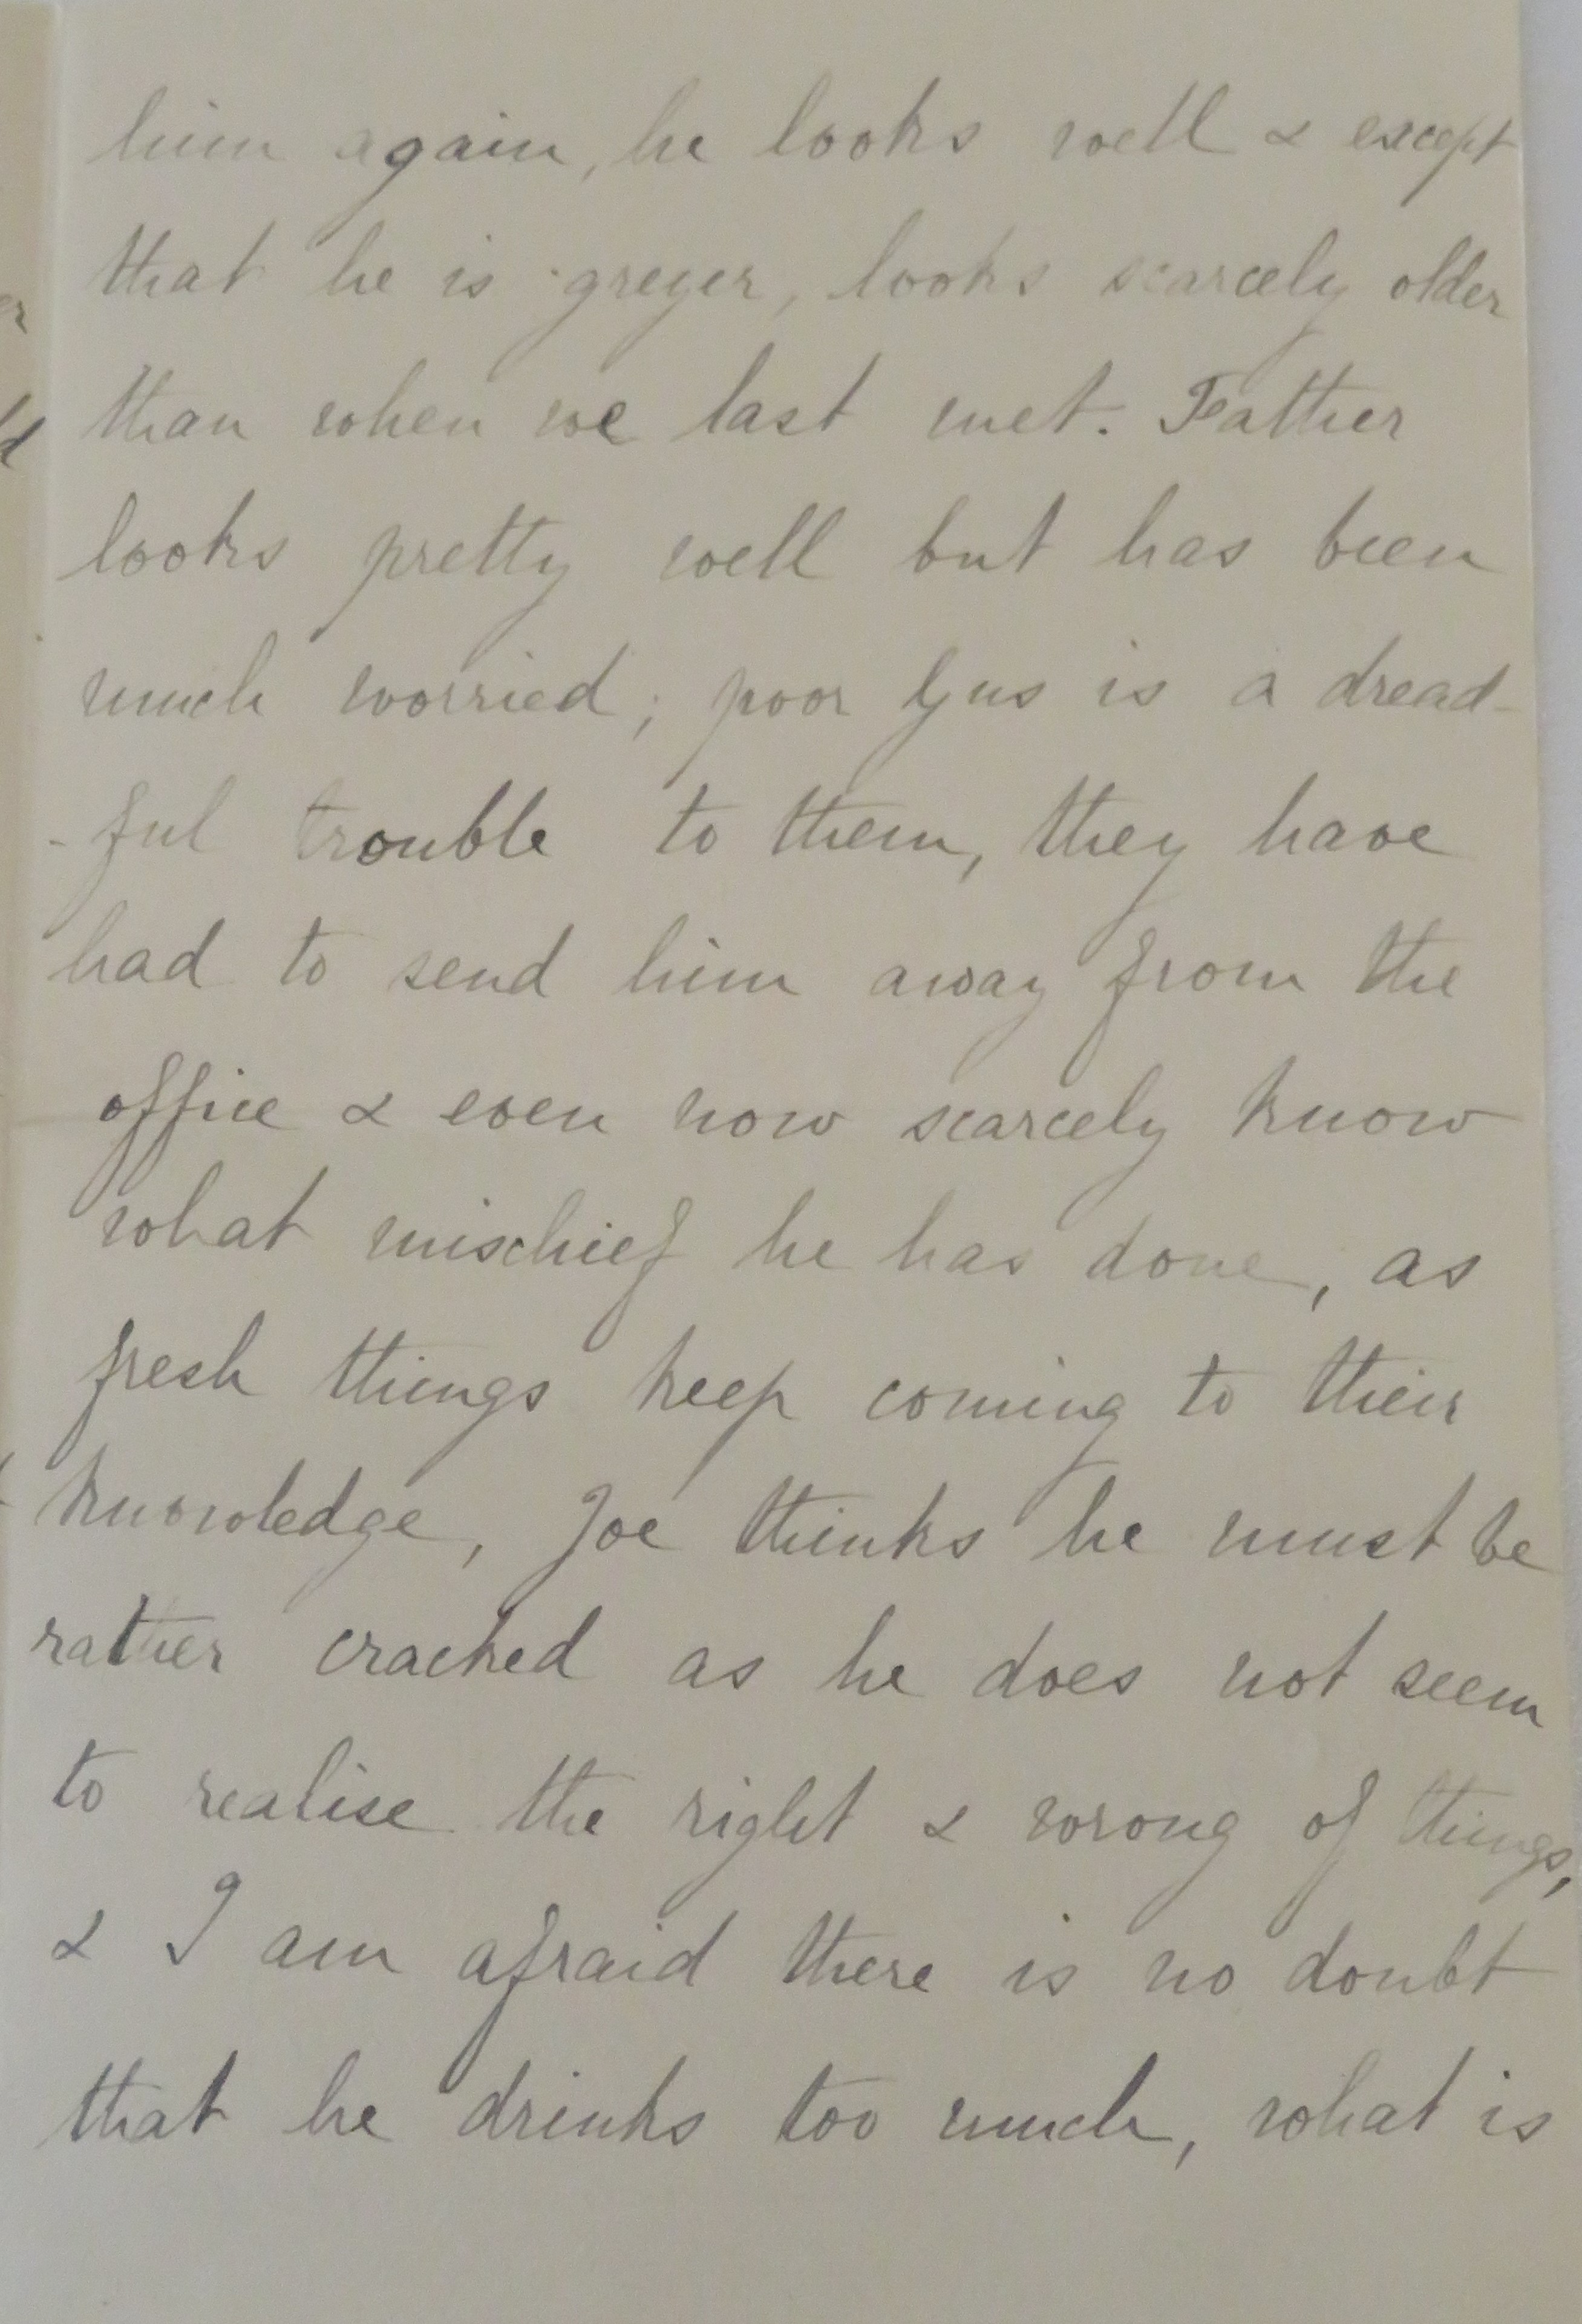 him again, he looks well & except
that he is greyer, looks scarcely older
than when we last met. Father
looks pretty well but has been
much worried; poor Gus is a dread-
-ful trouble to them, they have
had to send him away from the
office & even now scarcely know
what mischief he has done, as
fresh things keep coming to their
knowledge, Joe thinks he must be
rather cracked as he does not seem
to realise the right & wrong of things,
& I am afraid there is no doubt
that he drinks too much, what is